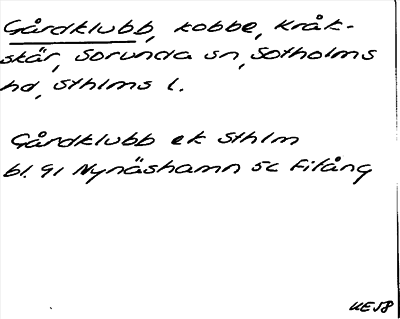 Gårdklubb, kobbe, Kråk-
skär, Sorunda sn, Sotholms
hd, Sthlms l.
Gårdklubb ek Sthlm
bl. 91 Nynäshamn 5c Fifång
KE58